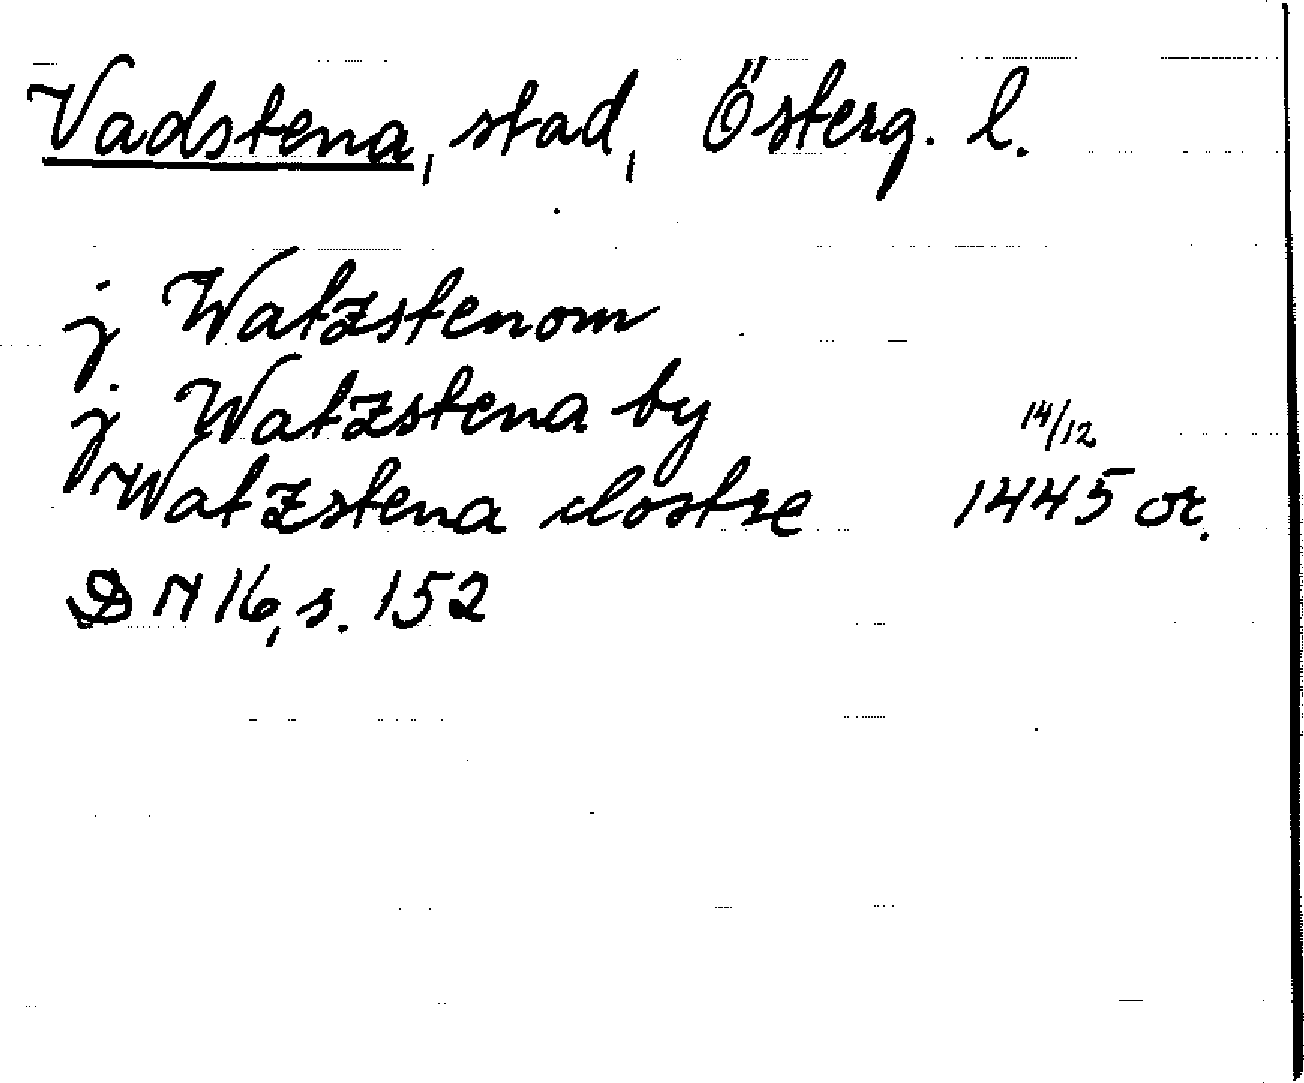 Vadstena, stad, Österg. l.
j Watzstenom
j Watzstena by 14/12
Watzstena clostre 1445 or.
DN 16, s. 152